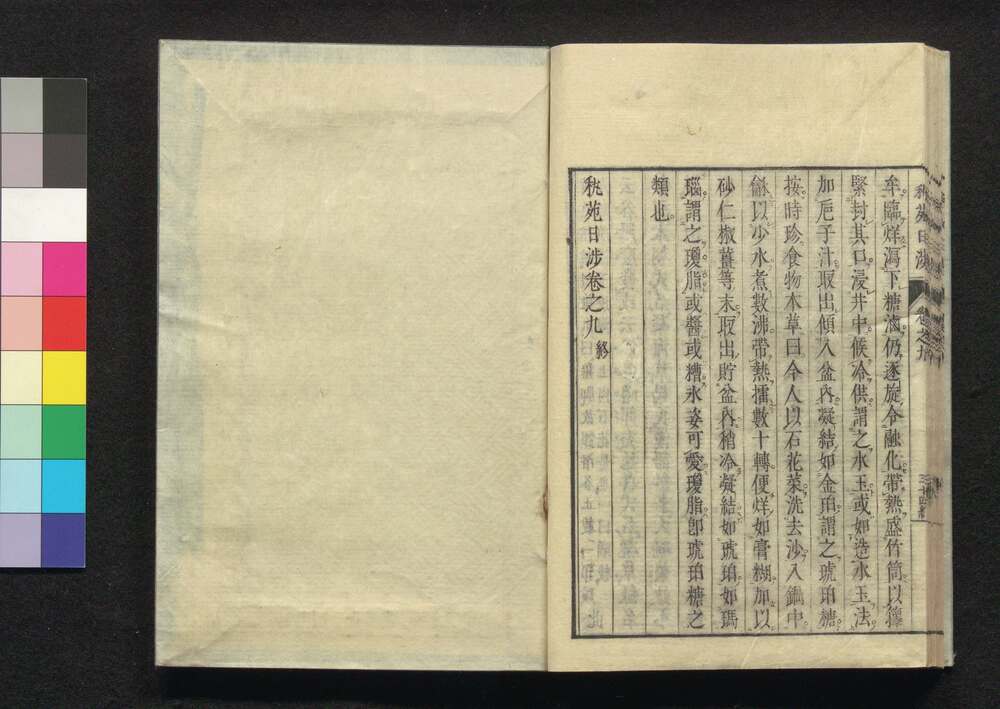 牟臨烊瀉下糖滷仍逐旋令融化帶熱盛竹筒以籜
緊封其口浸井中候冷供謂之水玉或如造水玉法
加巵子汁取出傾入盆內凝結如金珀謂之琥珀糖
按時珍食物本草曰今人以石花菜洗去沙入鍋中
龢以少水煮數沸帶熱擂數十轉便烊如膏糊加以
砂仁椒薑等末取出貯盆內稍冷凝結如琥珀如瑪
瑙謂之瓊脂或醬或糟氷姿可愛瓊脂卽琥珀糖之
類也
秇苑日涉卷之九終
秇苑日涉
卷之九